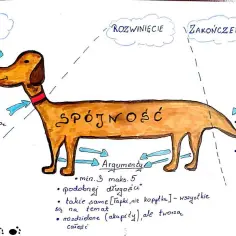 ROZWINIĘCIE
ZAKOŃCZE
SPÓJNOŚĆ
Argumenty
• min. 3 maks. 5
• podobnej długości
• takie same (łapki, nie kopytka) - wszystkie
są na temat
• rozdzielone (akapity), ale tworzą
całość